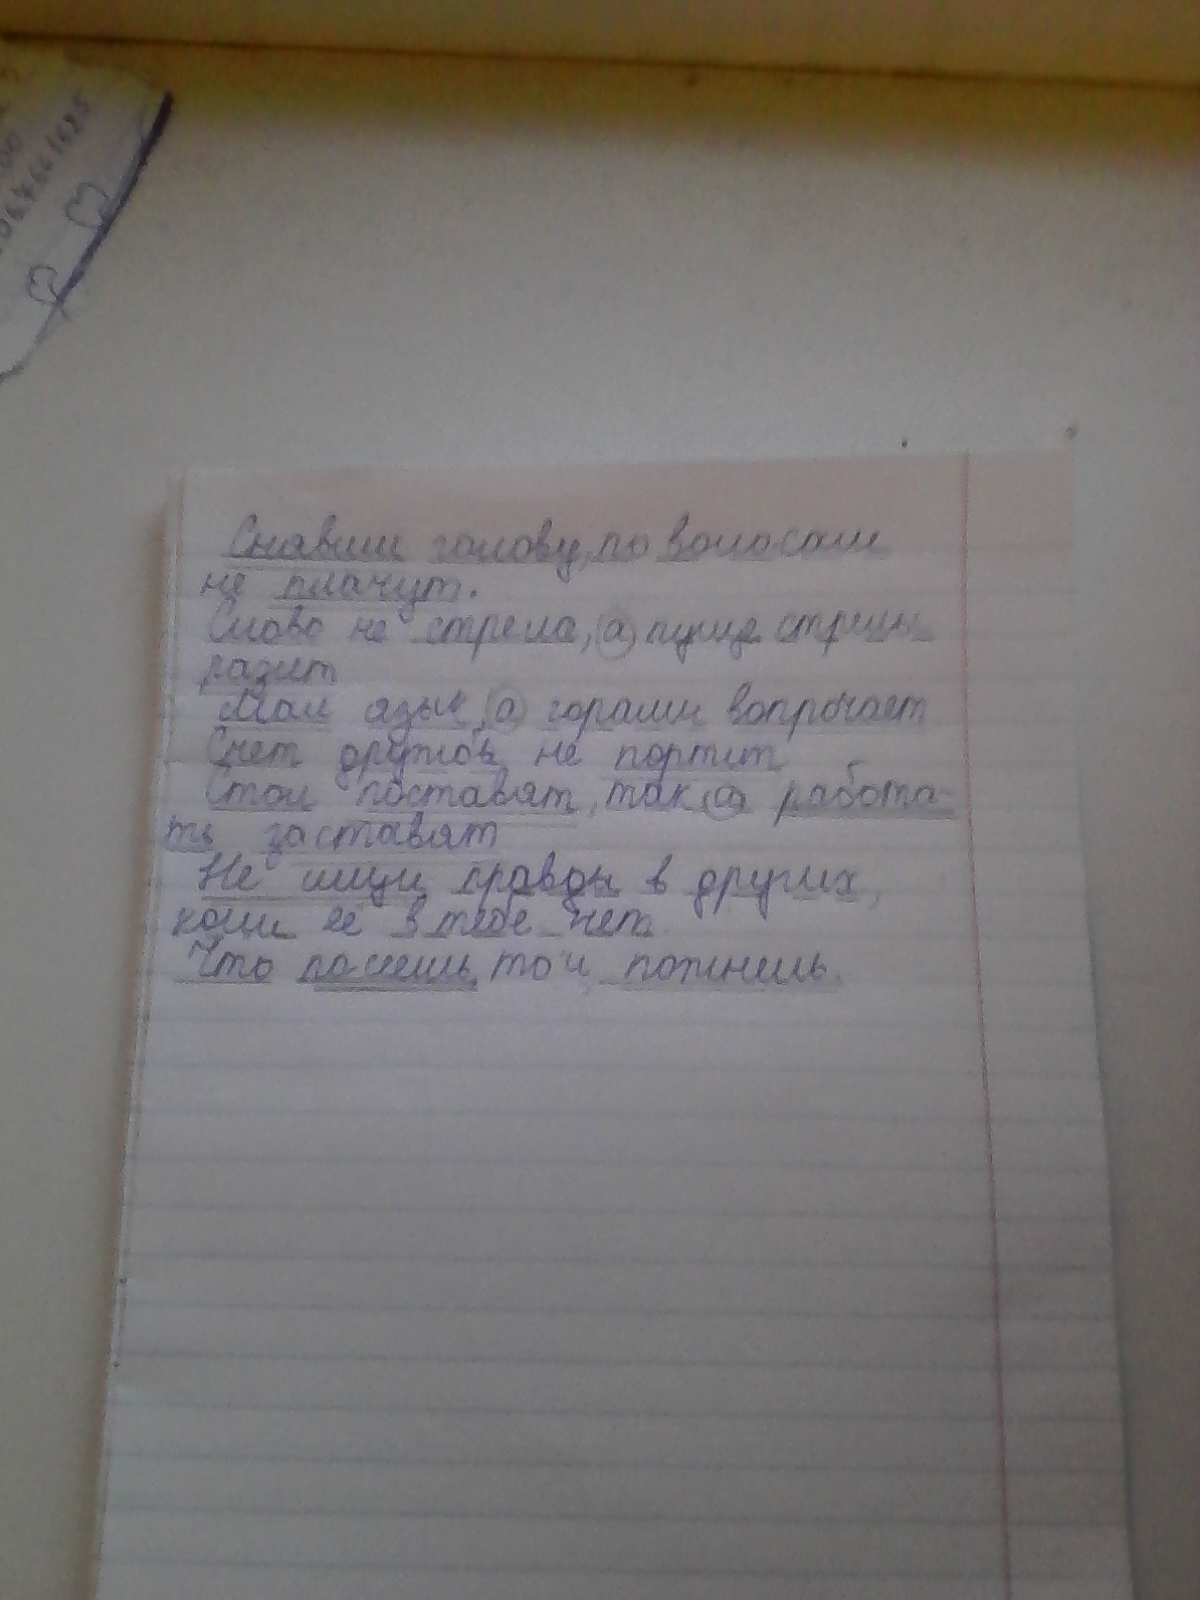 00
Снявши голову, по волосам
не плачут.
Слово не стрела, а пуще стрелы
разит
Мал язык, а горами вопрочает
Счет дружбы не портит
Стол поставят, так а работа-
ть заставят
Не ищи правды в других,
коли её в тебе нет
Что посеешь, то и пожнешь.